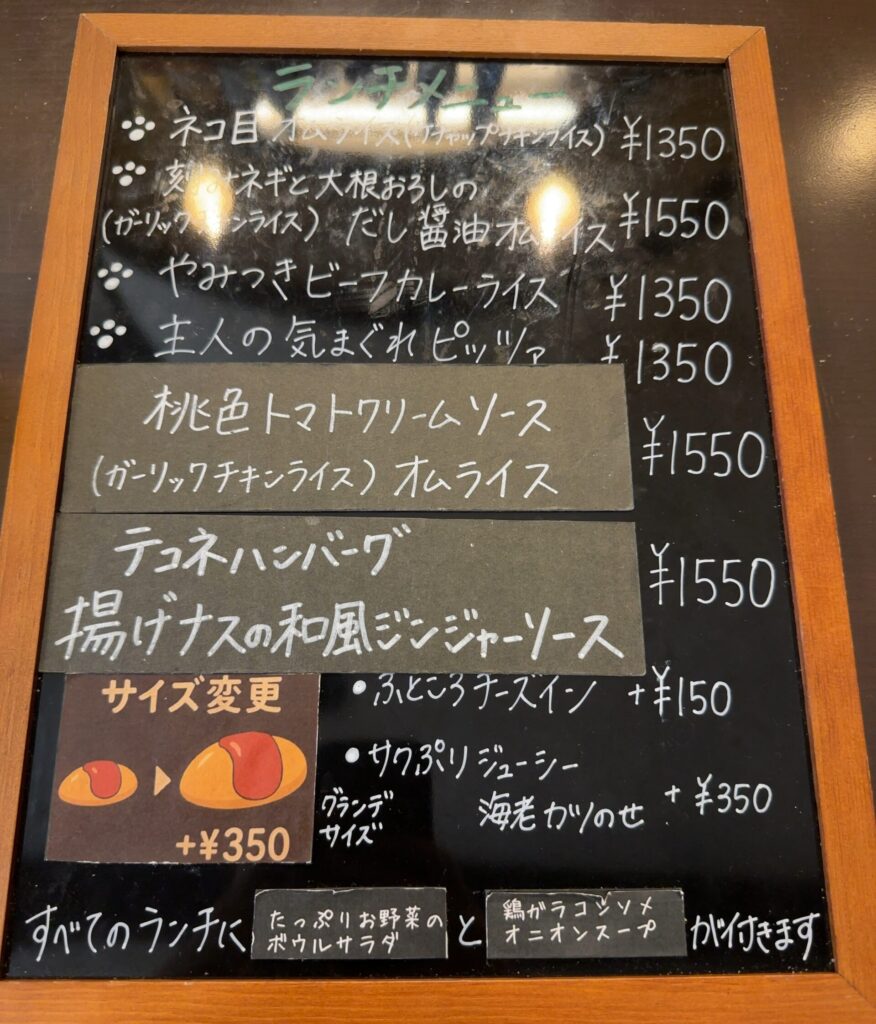 ランチメニュー
ネコ目 オムライス(ケチャップチキンライス) ¥1350
刻みネギと大根おろしの
(ガーリックチキンライス) だし醤油オムライス ¥1550
やみつきビーフカレーライス ¥1350
主人の気まぐれピッツァ ¥1350
桃色トマトクリームソース
(ガーリックチキンライス) オムライス ¥1550
テコネハンバーグ
揚げナスの和風ジンジャーソース ¥1550
サイズ変更
+¥350
グランデ
サイズ
•ふところチーズイン +¥150
•サクぷりジューシー
海老カツのせ +¥350
すべてのランチに たっぷりお野菜の
ボウルサラダ と 鶏ガラコンソメ
オニオンスープ が付きます